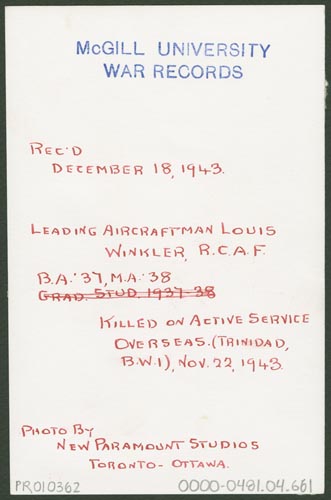 McGILL UNIVERSITY
WAR RECORDS
REC'D
DECEMBER 18, 1943.
LEADING AIRCRAFTMAN LOUIS
WINKLER, R.C.A.F.
B.A.'37, M.A.'38
GRAD. STUD. 1937-38
KILLED ON ACTIVE SERVICE
OVERSEAS. (TRINIDAD,
B.W.I), NOV. 22, 1943.
PHOTO BY
NEW PARAMOUNT STUDIOS
TORONTO-OTTAWA.
PR010362 0000-0481.04.661